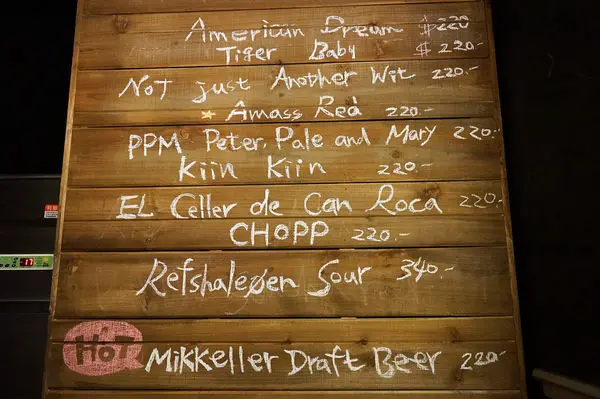 American Dream $220
Tiger Baby $220.-
Not just Another Wit 220.-
Amass Red 220.-
PPM Peter, Pale and Mary 220.-
Kiin Kiin 220.-
EL Celler de Can Roca 220.-
CHOPP 220.-
Refshaleøen Sour 340.-
HOT Mikkeller Draft Beer 220.-